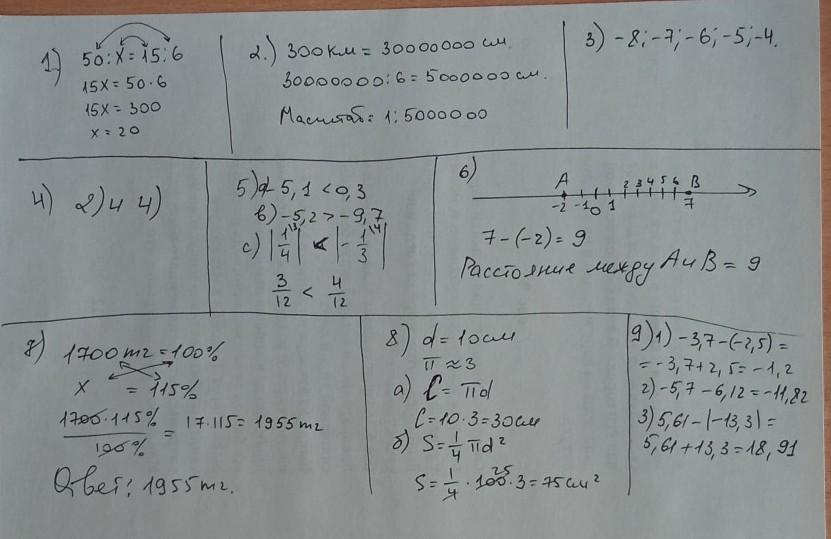 1) 50:x=15:6
15x=50·6
15x=300
x=20
2.) 300км=30000000см.
30000000:6=5000000см.
Масштаб=1:5000000
3) -8;-7;-6;-5;-4.
4) 2) и 4)
5) а) -5,1<0,3
в) -5,2>-9,7
с) |1\3/4| < |-1\4/3|
3/12 < 4/12
6)
A 2 3 4 5 6 B
-2 -1 0 1 7
7-(-2)=9
Расстояние между A и B=9
7) 1700тг=100%
x =115%
1700·115%/100% = 17·115=1955тг
Ответ: 1955тг.
8) d=10см
π≈3
а) C=πd
C=10·3=30см
б) S=1/4πd²
25
S=1/4·100·3=75см²
9) 1) -3,7-(-2,5)=
=-3,7+2,5=-1,2
2) -5,7-6,12=-11,82
3) 5,61-|-13,3|=
5,61+13,3=18,91